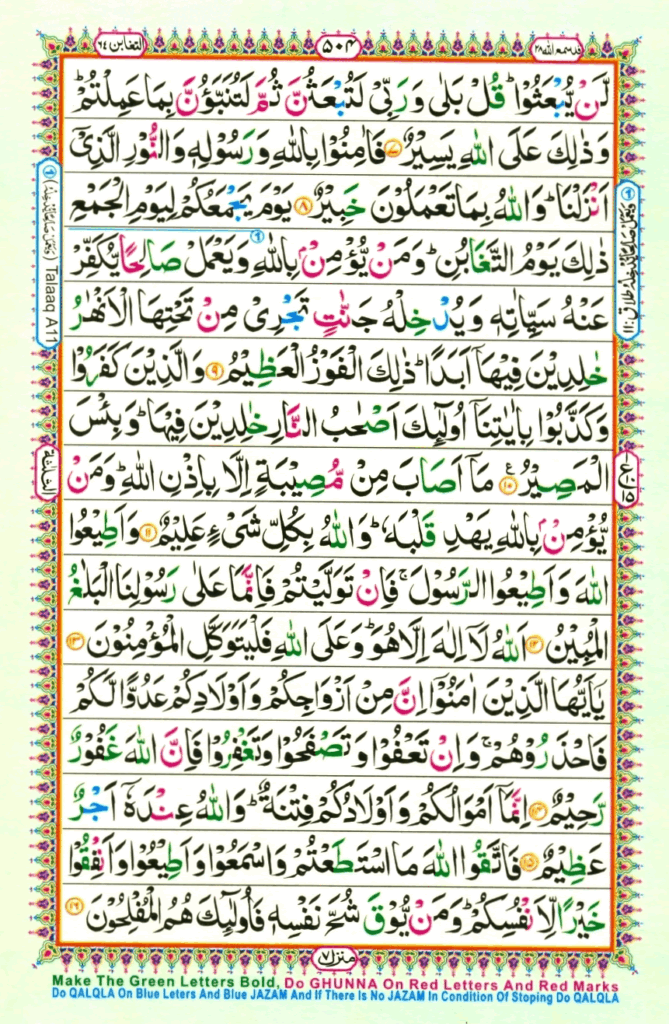 التغابن ٦٤
٥٠٤
قد سمع الله ٢٨
لَّنْ يُّبْعَثُوْا ؕ قُلْ بَلٰى وَرَبِّيْ لَتُبْعَثُنَّ ثُمَّ لَتُنَبَّؤُنَّ بِمَا عَمِلْتُمْ ؕ
وَذٰلِكَ عَلَى اللّٰهِ يَسِيْرٌ ﴿٧﴾ فَاٰمِنُوْا بِاللّٰهِ وَرَسُوْلِهٖ وَالنُّوْرِ الَّذِيْۤ
اَنْزَلْنَا ؕ وَاللّٰهُ بِمَا تَعْمَلُوْنَ خَبِيْرٌ ﴿٨﴾ يَوْمَ يَجْمَعُكُمْ لِيَوْمِ الْجَمْعِ
ذٰلِكَ يَوْمُ التَّغَابُنِ ؕ وَمَنْ يُّؤْمِنْۢ بِاللّٰهِ وَيَعْمَلْ صَالِحًا يُّكَفِّرْ
عَنْهُ سَيِّاٰتِهٖ وَيُدْخِلْهُ جَنّٰتٍ تَجْرِيْ مِنْ تَحْتِهَا الْاَنْهٰرُ
خٰلِدِيْنَ فِيْهَاۤ اَبَدًا ؕ ذٰلِكَ الْفَوْزُ الْعَظِيْمُ ﴿٩﴾ وَالَّذِيْنَ كَفَرُوْا
وَكَذَّبُوْا بِاٰيٰتِنَاۤ اُولٰٓئِكَ اَصْحٰبُ النَّارِ خٰلِدِيْنَ فِيْهَا ؕ وَبِئْسَ
الْمَصِيْرُ ﴿١٠﴾ ع مَاۤ اَصَابَ مِنْ مُّصِيْبَةٍ اِلَّا بِاِذْنِ اللّٰهِ ؕ وَمَنْ
يُّؤْمِنْۢ بِاللّٰهِ يَهْدِ قَلْبَهٗ ؕ وَاللّٰهُ بِكُلِّ شَيْءٍ عَلِيْمٌ ﴿١١﴾ وَاَطِيْعُوا
اللّٰهَ وَاَطِيْعُوا الرَّسُوْلَ ۚ فَاِنْ تَوَلَّيْتُمْ فَاِنَّمَا عَلٰى رَسُوْلِنَا الْبَلٰغُ
الْمُبِيْنُ ﴿١٢﴾ اَللّٰهُ لَاۤ اِلٰهَ اِلَّا هُوَ ؕ وَعَلَى اللّٰهِ فَلْيَتَوَكَّلِ الْمُؤْمِنُوْنَ ﴿١٣﴾
يٰۤاَيُّهَا الَّذِيْنَ اٰمَنُوْۤا اِنَّ مِنْ اَزْوَاجِكُمْ وَاَوْلَادِكُمْ عَدُوًّا لَّكُمْ
فَاحْذَرُوْهُمْ ۚ وَاِنْ تَعْفُوْا وَتَصْفَحُوْا وَتَغْفِرُوْا فَاِنَّ اللّٰهَ غَفُوْرٌ
رَّحِيْمٌ ﴿١٤﴾ اِنَّمَاۤ اَمْوَالُكُمْ وَاَوْلَادُكُمْ فِتْنَةٌ ؕ وَاللّٰهُ عِنْدَهٗۤ اَجْرٌ
عَظِيْمٌ ﴿١٥﴾ فَاتَّقُوا اللّٰهَ مَا اسْتَطَعْتُمْ وَاسْمَعُوْا وَاَطِيْعُوْا وَاَنْفِقُوْا
خَيْرًا لِّاَنْفُسِكُمْ ؕ وَمَنْ يُّوْقَ شُحَّ نَفْسِهٖ فَاُولٰٓئِكَ هُمُ الْمُفْلِحُوْنَ ﴿١٦﴾
Talaaq A11
الثلٰثة
منزل ٧
Make The Green Letters Bold, Do GHUNNA On Red Letters And Red Marks
Do QALQLA On Blue Leters And Blue JAZAM And If There Is No JAZAM In Condition Of Stoping Do QALQLA